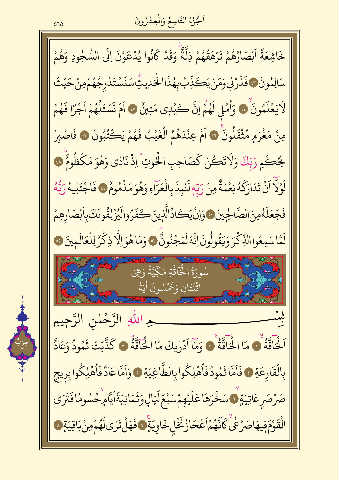 اَلْجُزْءُ التَّاسِعُ وَالْعِشْرُونَ
خَاشِعَةً اَبْصَارُهُمْ تَرْهَقُهُمْ ذِلَّةٌ وَقَدْ كَانُوا يُدْعَوْنَ اِلَى السُّجُودِ وَهُمْ
سَالِمُونَ فَذَرْنِى وَمَنْ يُكَذِّبُ بِهٰذَا الْحَدِيثِ سَنَسْتَدْرِجُهُمْ مِنْ حَيْثُ
لَا يَعْلَمُونَ وَاُمْلِى لَهُمْ اِنَّ كَيْدِى مَتِينٌ اَمْ تَسْـَٔلُهُمْ اَجْرًا فَهُمْ
مِنْ مَغْرَمٍ مُثْقَلُونَ اَمْ عِنْدَهُمُ الْغَيْبُ فَهُمْ يَكْتُبُونَ فَاصْبِرْ
لِحُكْمِ رَبِّكَ وَلَا تَكُنْ كَصَاحِبِ الْحُوتِ اِذْ نَادٰى وَهُوَ مَكْظُومٌ
لَوْلَا اَنْ تَدَارَكَهُ نِعْمَةٌ مِنْ رَبِّهِ لَنُبِذَ بِالْعَرَاءِ وَهُوَ مَذْمُومٌ فَاجْتَبٰيهُ رَبُّهُ
فَجَعَلَهُ مِنَ الصَّالِحِينَ وَاِنْ يَكَادُ الَّذِينَ كَفَرُوا لَيُزْلِقُونَكَ بِاَبْصَارِهِمْ
لَمَّا سَمِعُوا الذِّكْرَ وَيَقُولُونَ اِنَّهُ لَمَجْنُونٌ وَمَا هُوَ اِلَّا ذِكْرٌ لِلْعَالَمِينَ
سُورَةُ الْحَاقَّةِ مَكِّيَّةٌ وَهِىَ
اثْنَتَانِ وَخَمْسُونَ اٰيَةً
بِسْمِ اللهِ الرَّحْمٰنِ الرَّحِيمِ
اَلْحَاقَّةُ مَا الْحَاقَّةُ وَمَا اَدْرٰيكَ مَا الْحَاقَّةُ كَذَّبَتْ ثَمُودُ وَعَادٌ
بِالْقَارِعَةِ فَاَمَّا ثَمُودُ فَاُهْلِكُوا بِالطَّاغِيَةِ وَاَمَّا عَادٌ فَاُهْلِكُوا بِرِيحٍ
صَرْصَرٍ عَاتِيَةٍ سَخَّرَهَا عَلَيْهِمْ سَبْعَ لَيَالٍ وَثَمَانِيَةَ اَيَّامٍ حُسُومًا فَتَرَى
الْقَوْمَ فِيهَا صَرْعٰى كَاَنَّهُمْ اَعْجَازُ نَخْلٍ خَاوِيَةٍ فَهَلْ تَرٰى لَهُمْ مِنْ بَاقِيَةٍ